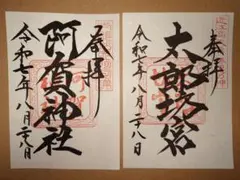 奉拝
阿賀神社
令和七年八月二八日
奉拝
太郎坊宮
令和七年八月二八日